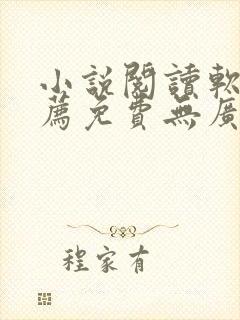 小說閱讀軟
薦免費無廣
程家有